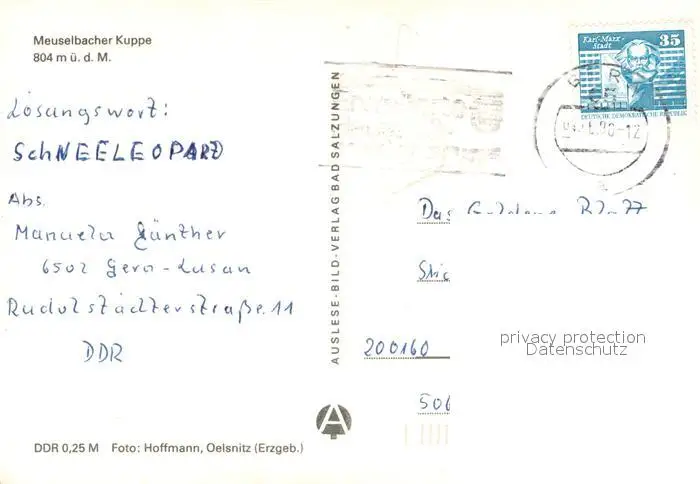 Meuselbacher Kuppe
804 m ü. d. M.
Lösungswort:
SchNEELEOPARD
Abs.
Manuela Günther
6502 Gera-Lusan
Rudolstädterstraße 11
DDR
DDR 0,25 M Foto: Hoffmann, Oelsnitz (Erzgeb.)
AUSLESE-BILD-VERLAG BAD SALZUNGEN
Karl-Marx-Stadt
35
DEUTSCHE DEMOKRATISCHE REPUBLIK
Das Goldene Blatt
200160
506
privacy protection
Datenschutz